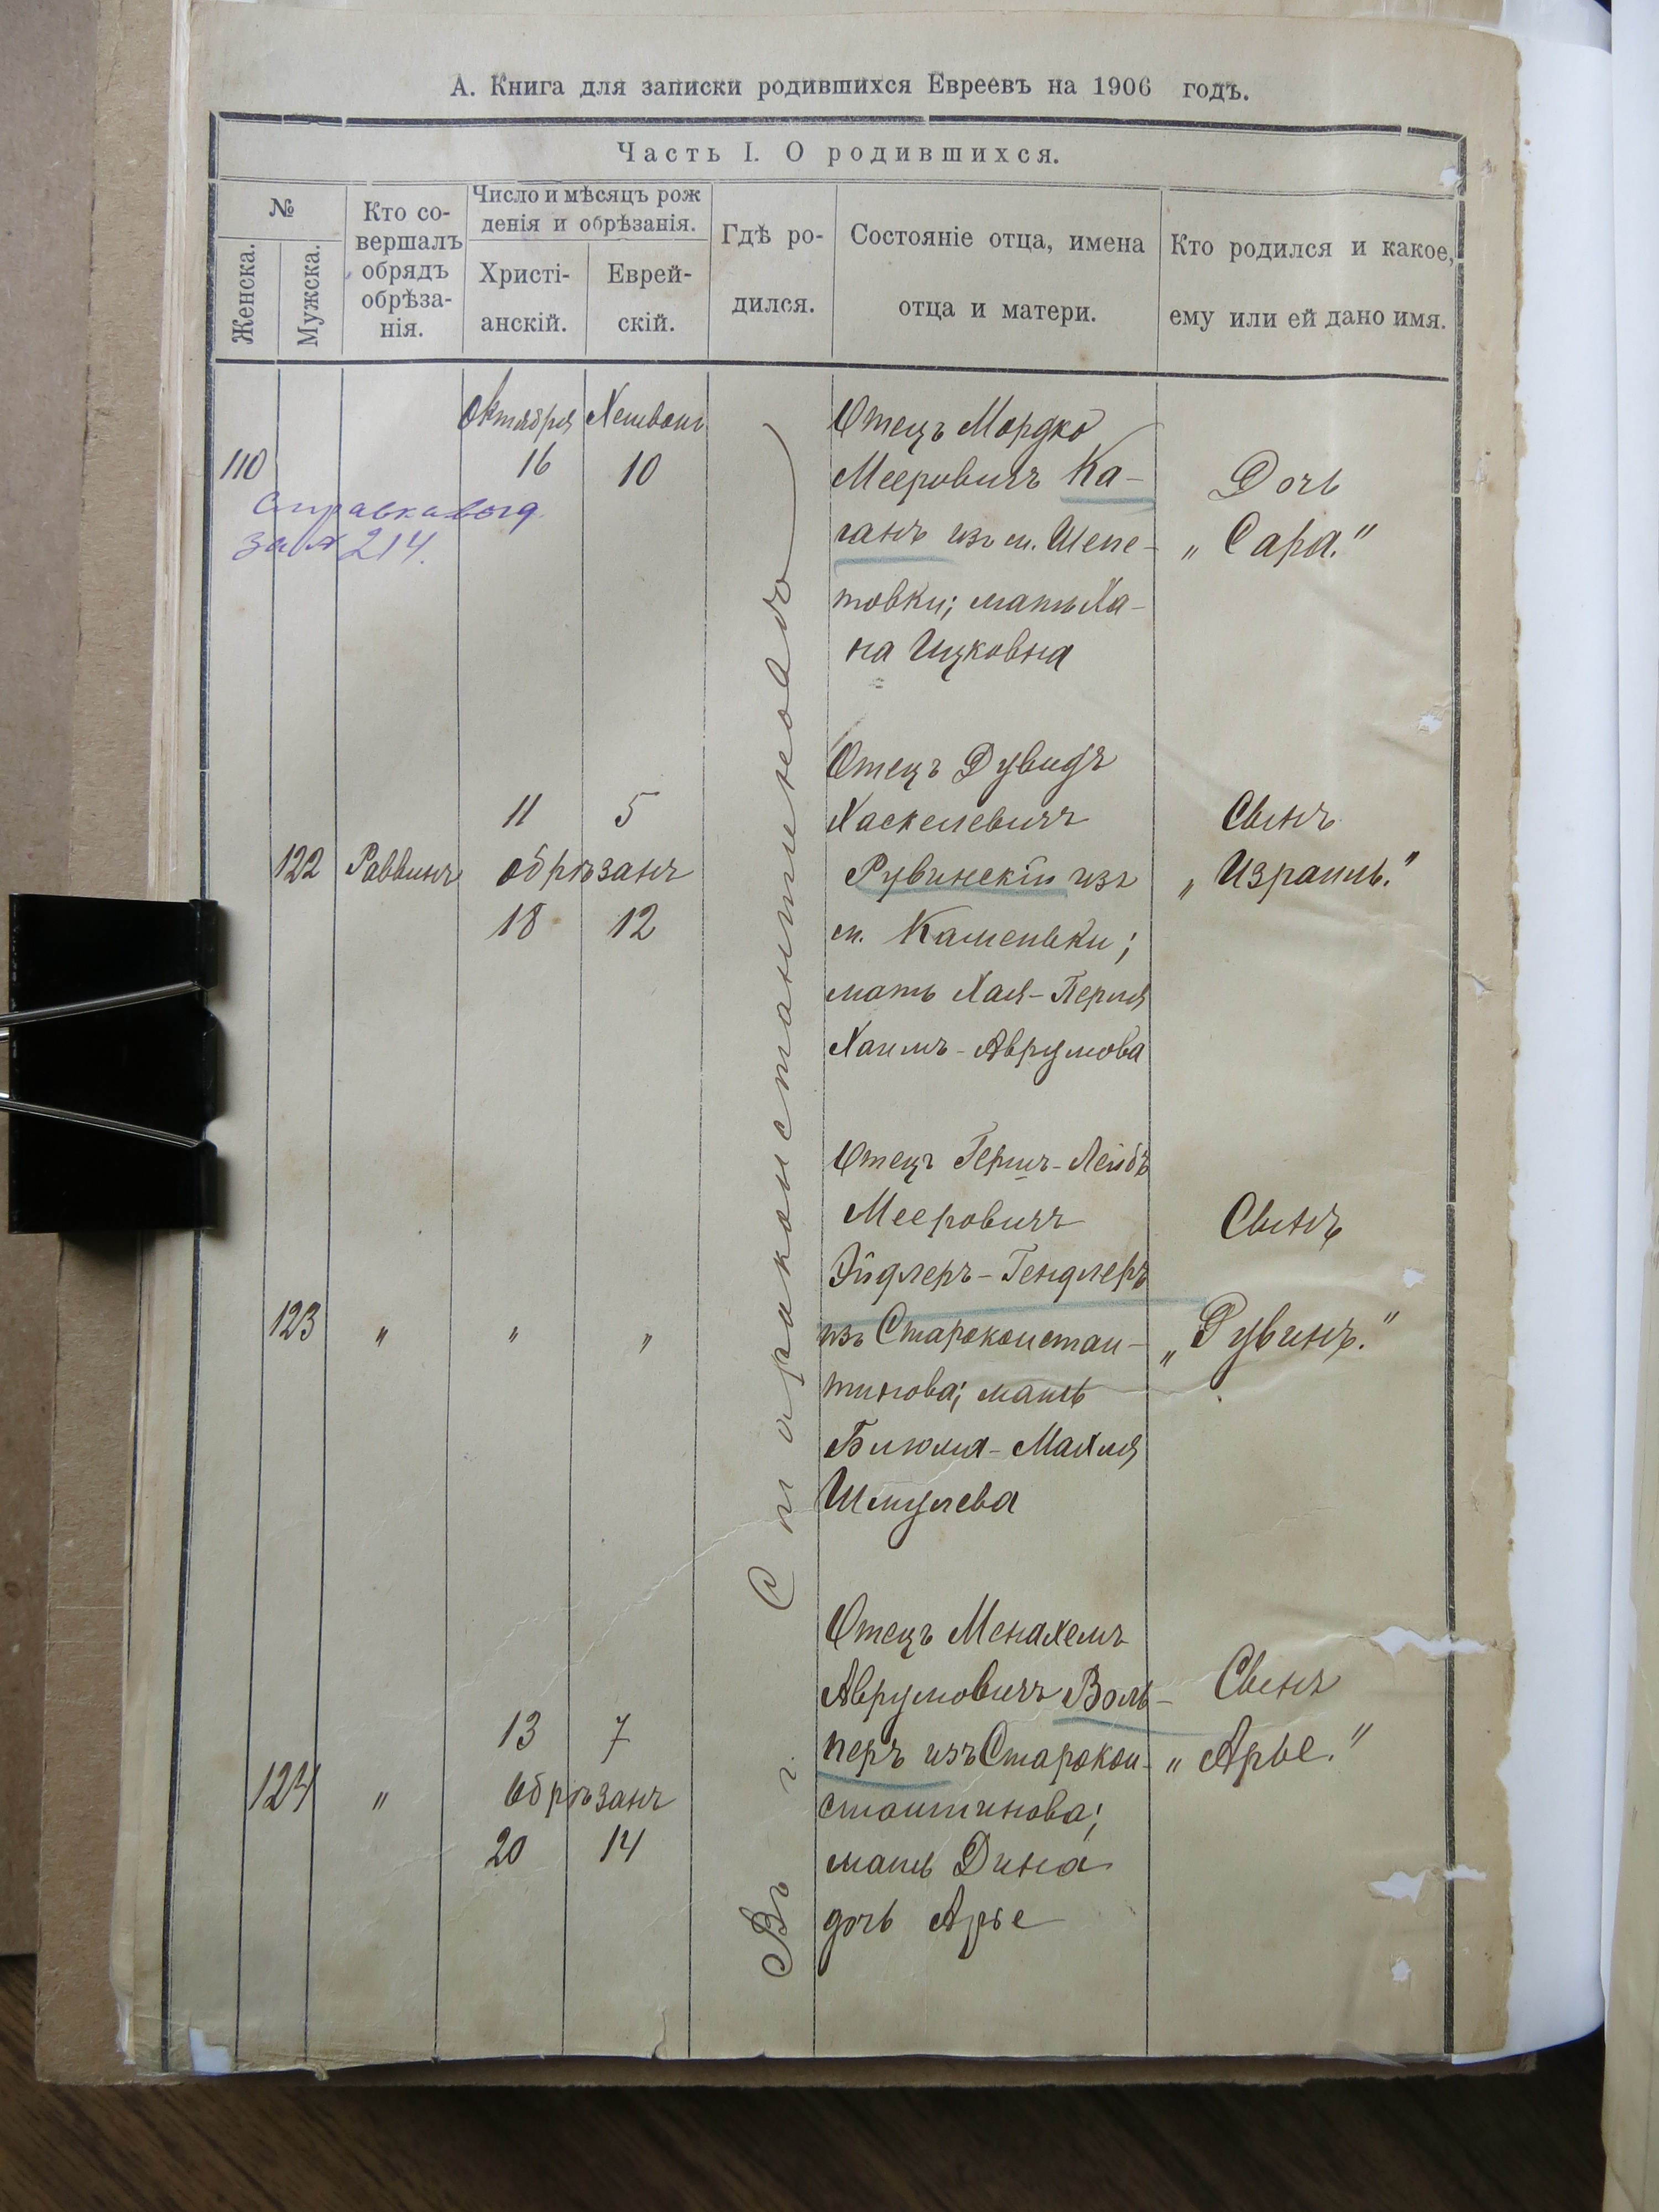 А. Книга для записки родившихся Евреевъ на 1906 годъ.
Часть I. О родившихся.
№
Женска.
Мужска.
Кто со-
вершалъ
обрядъ
обрѣза-
нія.
Число и мѣсяцъ рож
денія и обрѣзанія.
Христі-
анскій.
Еврей-
скій.
Гдѣ ро-
дился.
Состояніе отца, имена
отца и матери.
Кто родился и какое,
ему или ей дано имя.
Въ г. Староконстантиновѣ
110
Октября Хешвонъ
16 10
Справка выд.
за № 214.
Отецъ Мордко
Мееровичъ Ка-
ганъ изъ м. Шепе-
товки; мать Ха-
на Ицковна
Дочь
„Сара."
122
Раввинъ
11 5
обрѣзанъ
18 12
Отецъ Дувидъ
Хаскелевичъ
Рувинскій изъ
м. Каменьки;
мать Хая-Перля
Хаимъ-Аврумова
Сынъ
„Израиль."
123
" " "
Отецъ Гершъ-Лейбъ
Мееровичъ
Эйдлеръ-Гендлеръ
изъ Староконстан-
тинова; мать
Блюма-Махля
Шмулева
Сынъ
„Рувинъ."
124
"
13 7
обрѣзанъ
20 14
Отецъ Менахемъ
Аврумовичъ Воль-
перъ изъ Старокон-
стантинова;
мать Дина
дочь Арье
Сынъ
„Арье."